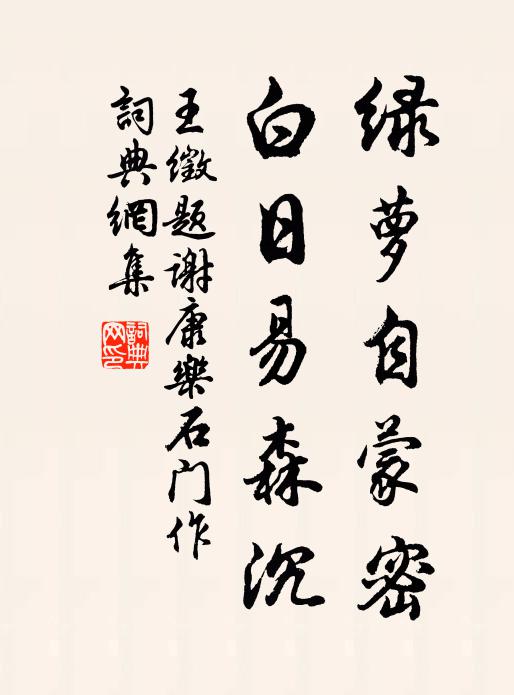 绿萝自蒙密
白日易森沉
王徵题谢康樂石门作
詞典網集
詞典网印